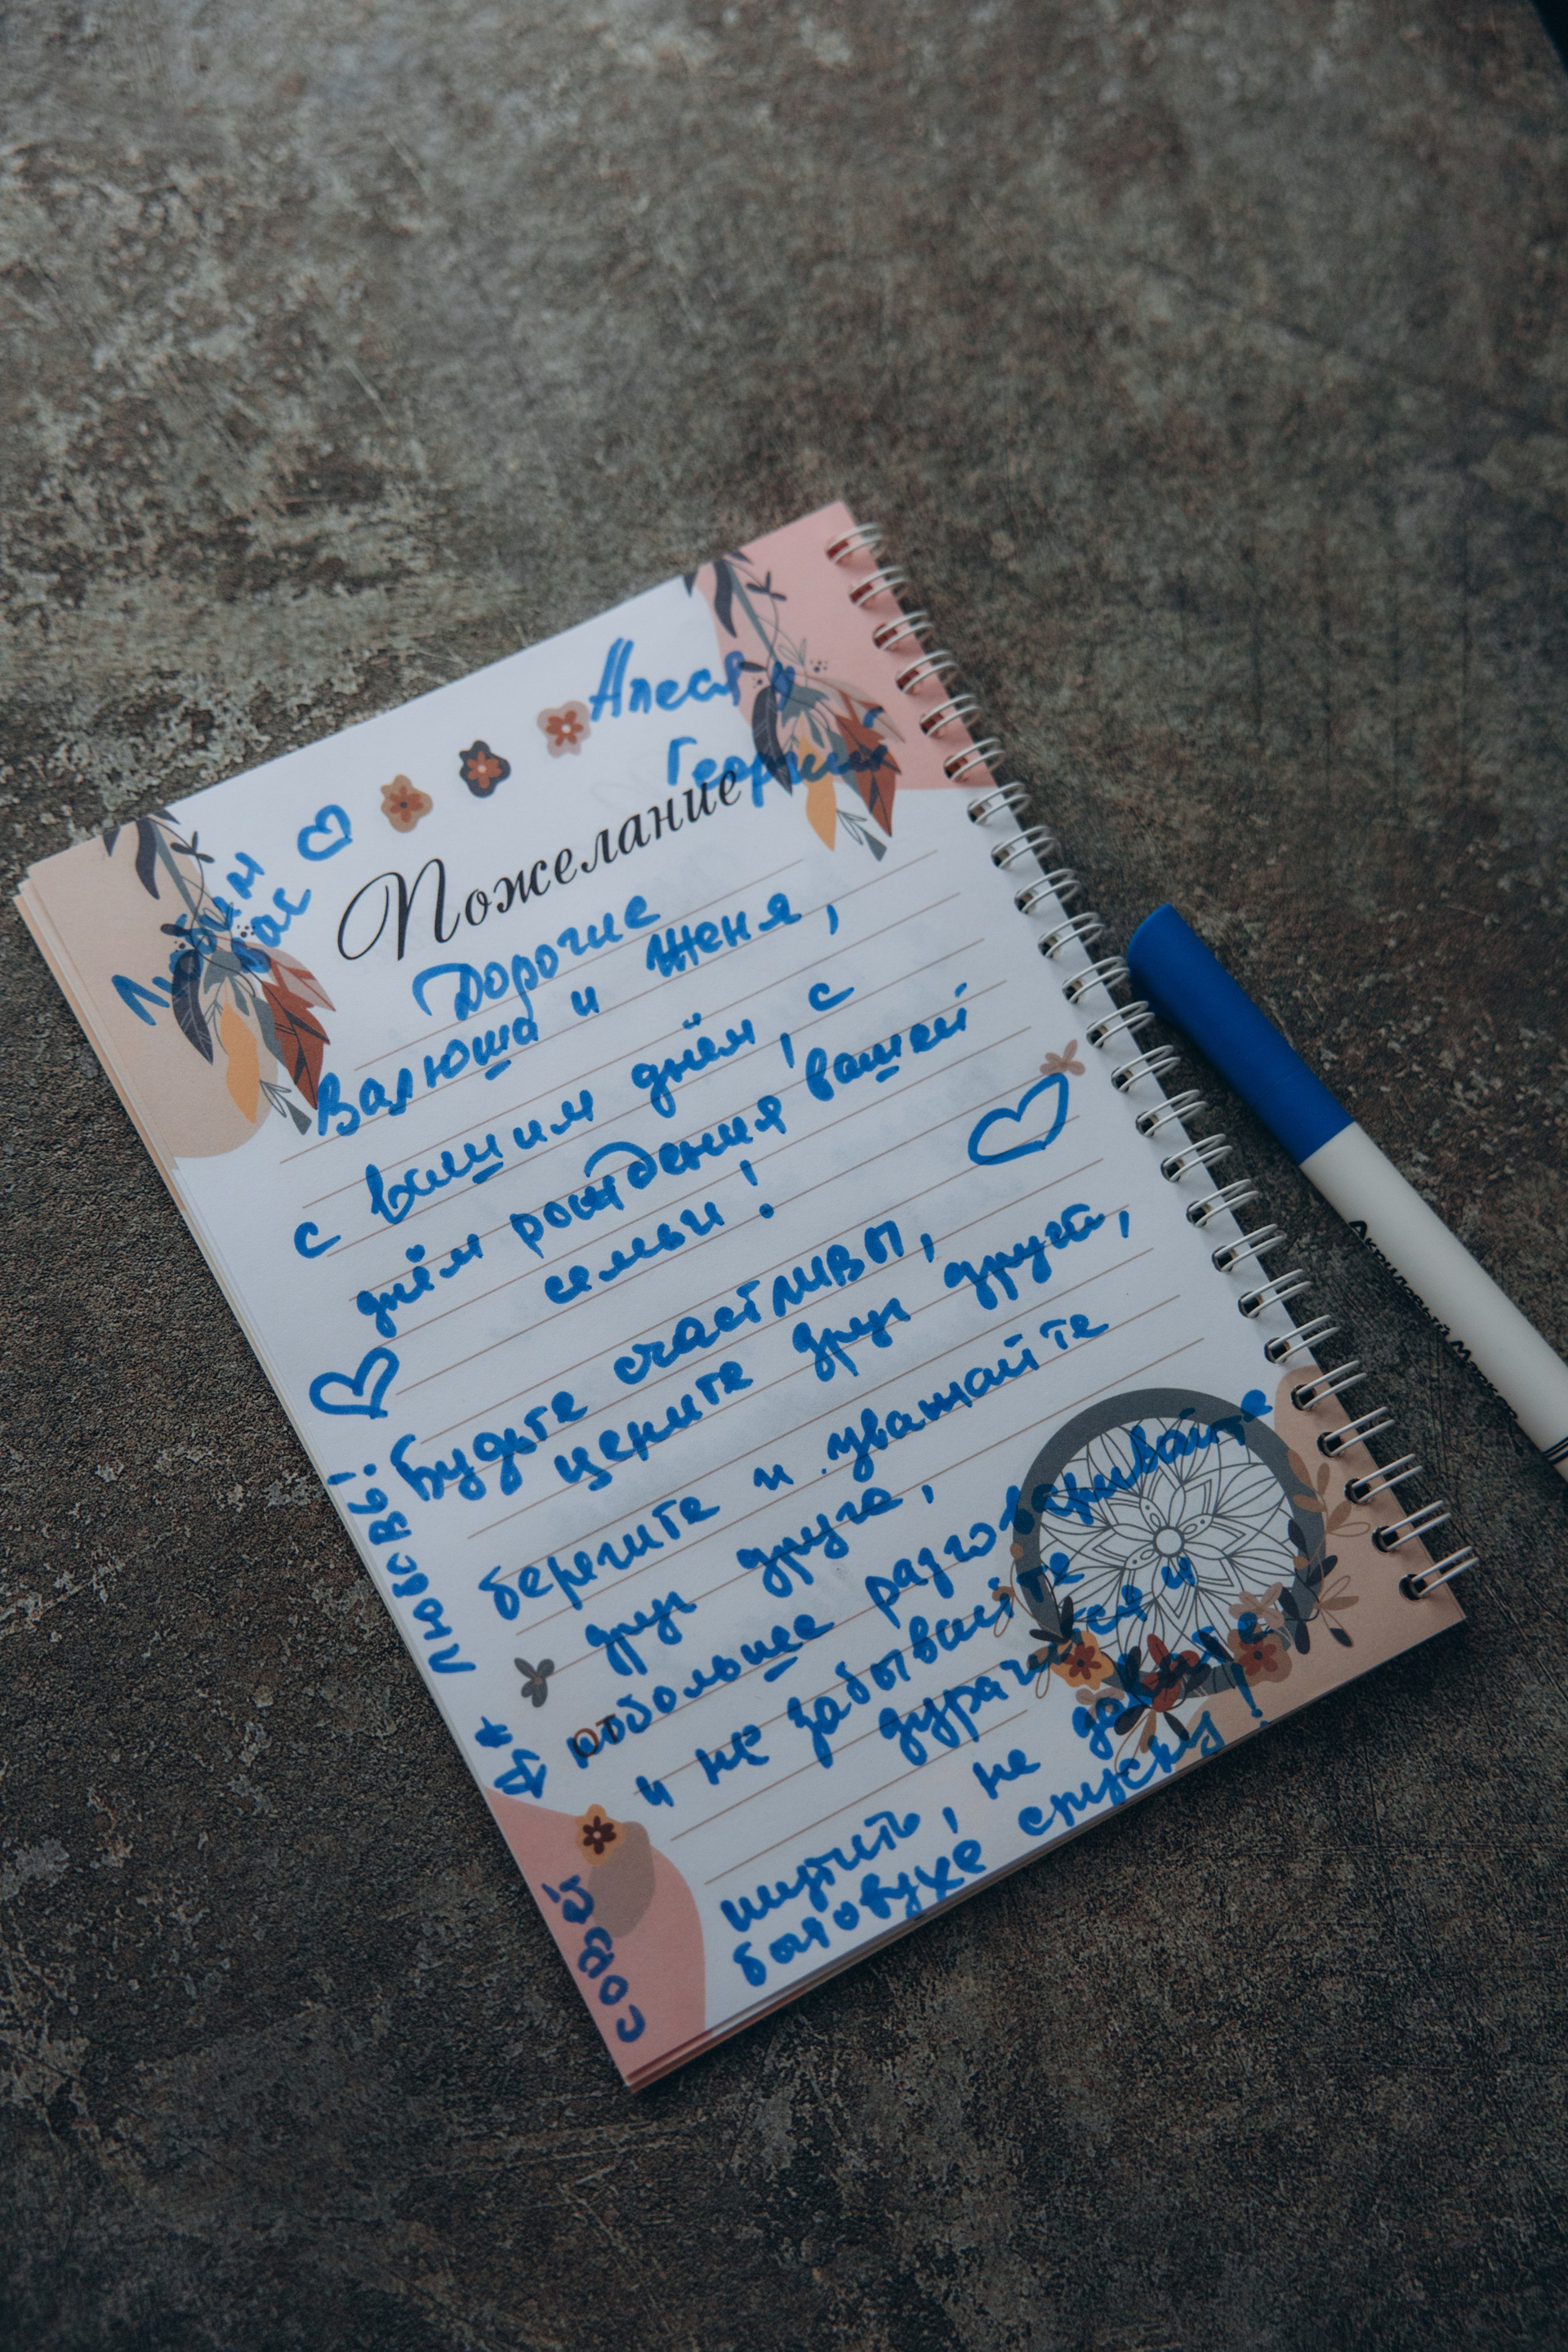 Алеся и
Георгий
Любим
вас
Пожелание
Дорогие
Валюша и Женя,
с вашим днём, с
днём рождения вашей
семьи!
Будьте счастливы,
цените друг друга,
берегите и уважайте
друг друга,
побольше разговаривайте
и не забывайте
дурачится и
шутить, не давайте
бытовухе спуску!
от
Совет
да
Любовь!
Акриловый Маркер